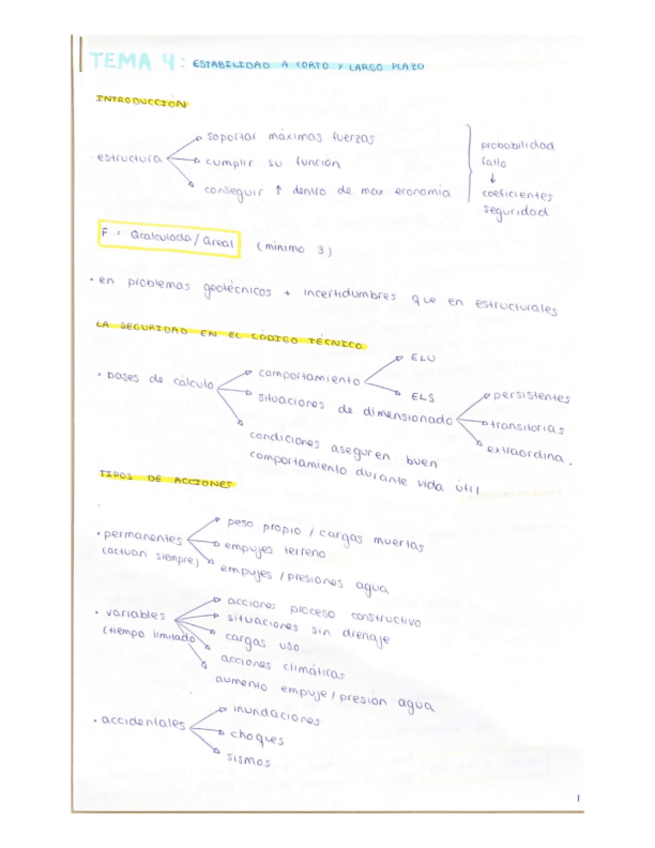 TEMA 4: ESTABILIDAD A CORTO Y LARGO PLAZO
INTRODUCCIÓN
· estructura
soportar máximas fuerzas
cumplir su función
conseguir ↑ dentro de max economia
probabilidad
fallo
↓
coeficientes
seguridad
F = Qcalculada/Qreal (mínimo 3)
· en problemas geotécnicos + incertidumbres que en estructurales
LA SEGURIDAD EN EL CÓDIGO TÉCNICO
· bases de cálculo
comportamiento
ELU
ELS
situaciones de dimensionado
persistentes
transitorias
extraordina.
condiciones aseguren buen
comportamiento durante vida útil
TIPOS DE ACCIONES
· permanentes
(actúan siempre)
peso propio / cargas muertas
empujes terreno
empujes / presiones agua
· variables
(tiempo limitado
acciones proceso constructivo
situaciones sin drenaje
cargas uso
acciones climáticas
aumento empuje / presión agua
· accidentales
inundaciones
choques
sismos
1